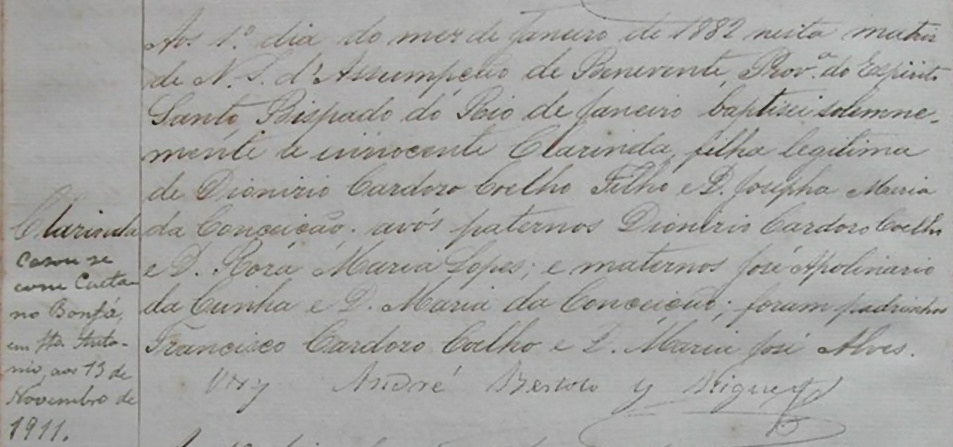 Aos 1º dia do mez de Janeiro de 1882 nesta matriz
de N. S. d'Assumpção de Benevente, Prov.ª do Espirito
Santo, Bispado do Rio de Janeiro baptisei solemne-
mente a innocente Clarinda, filha legitima
de Dionizio Cardozo Coelho Filho e D. Josepha Maria
da Conceição. avós paternos Dionizio Cardozo Coelho
e D. Roza Maria Lopes; e maternos José Apolinario
da Cunha e D. Maria da Conceição; foram padrinhos
Francisco Cardozo Coelho e D. Maria José Alves.
André y
Clarinda
casou se
com Caeta-
no Bonfá,
em Sto Anto-
nio, aos 13 de
Novembro de
1911.